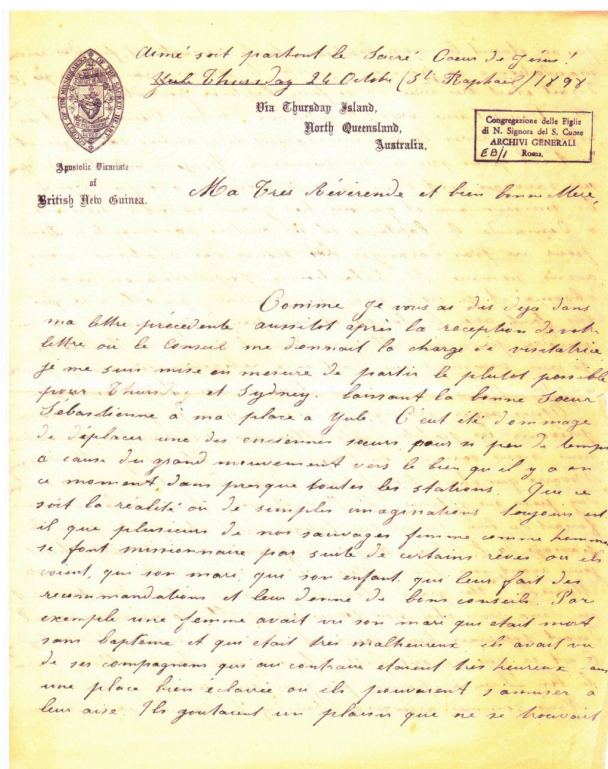 Aimé soit partout le Sacré Coeur de Jésus!
Yule Thursday 24 Octobre (St Raphael) 1898
Via Thursday Island,
North Queensland,
Australia.
Congregazione delle Figlie
di N. Signora del S. Cuore
ARCHIVI GENERALI
EB/1 Roma.
Apostolic Vicariate
of
British New Guinea.
Ma Très Révérende et bien bonne Mère,
Comme je vous ai dis deja dans
ma lettre précedente aussitot après la reception de votre
lettre où le Conseil me donnait la charge de visitatrice
je me suis mise en mesure de partir le plutot possible
pour Thursday et Sydney. laissant la bonne Soeur
Sébastienne à ma place a Yule. C'eut été dommage
de déplacer une des anciennes soeurs pour si peu de temps
à cause du grand mouvement vers le bien qu'il y a en
ce moment dans presque toutes les stations. Que ce
soit la réalité où de simples imaginations toujours est
il que plusieurs de nos sauvages femme comme homme
se font missionnaire par suite de certains rêves ou ils
voient, qui son mari, qui son enfant, qui leur fait des
recommandations et leur donne de bons conseils. Par
exemple une femme avait vu son mari qui était mort
sans bapteme et qui était très malheureux ils avait vu
de ses compagnons qui au contraire etaient très heureux dans
une place bien eclairée ou ils pouvaient s'amuser a
leur aise. Ils goutaient un plaisir que ne se trouvait